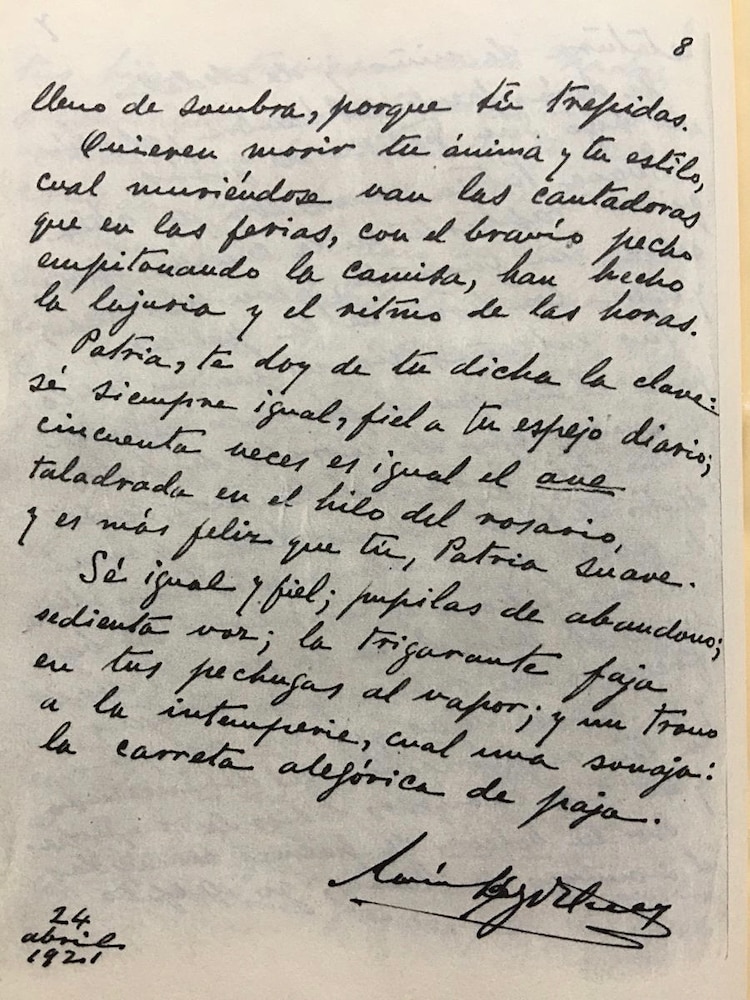 8
lleno de sombra, porque tú trepidas.
Quieren morir tu ánima y tu estilo,
cual muriéndose van las cantadoras
que en las ferias, con el bravío pecho
empitonando la camisa, han hecho
la lujuria y el ritmo de las horas.
Patria, te doy de tu dicha la clave:
sé siempre igual, fiel a tu espejo diario;
cincuenta veces es igual el ave
taladrada en el hilo del rosario,
y es más feliz que tú, Patria suave.
Sé igual y fiel; pupilas de abandono;
sedienta voz; la trigarante faja
en tus pechugas al vapor; y un trono
a la intemperie, cual una sonaja:
la carreta alegórica de paja.
24
abril
1921